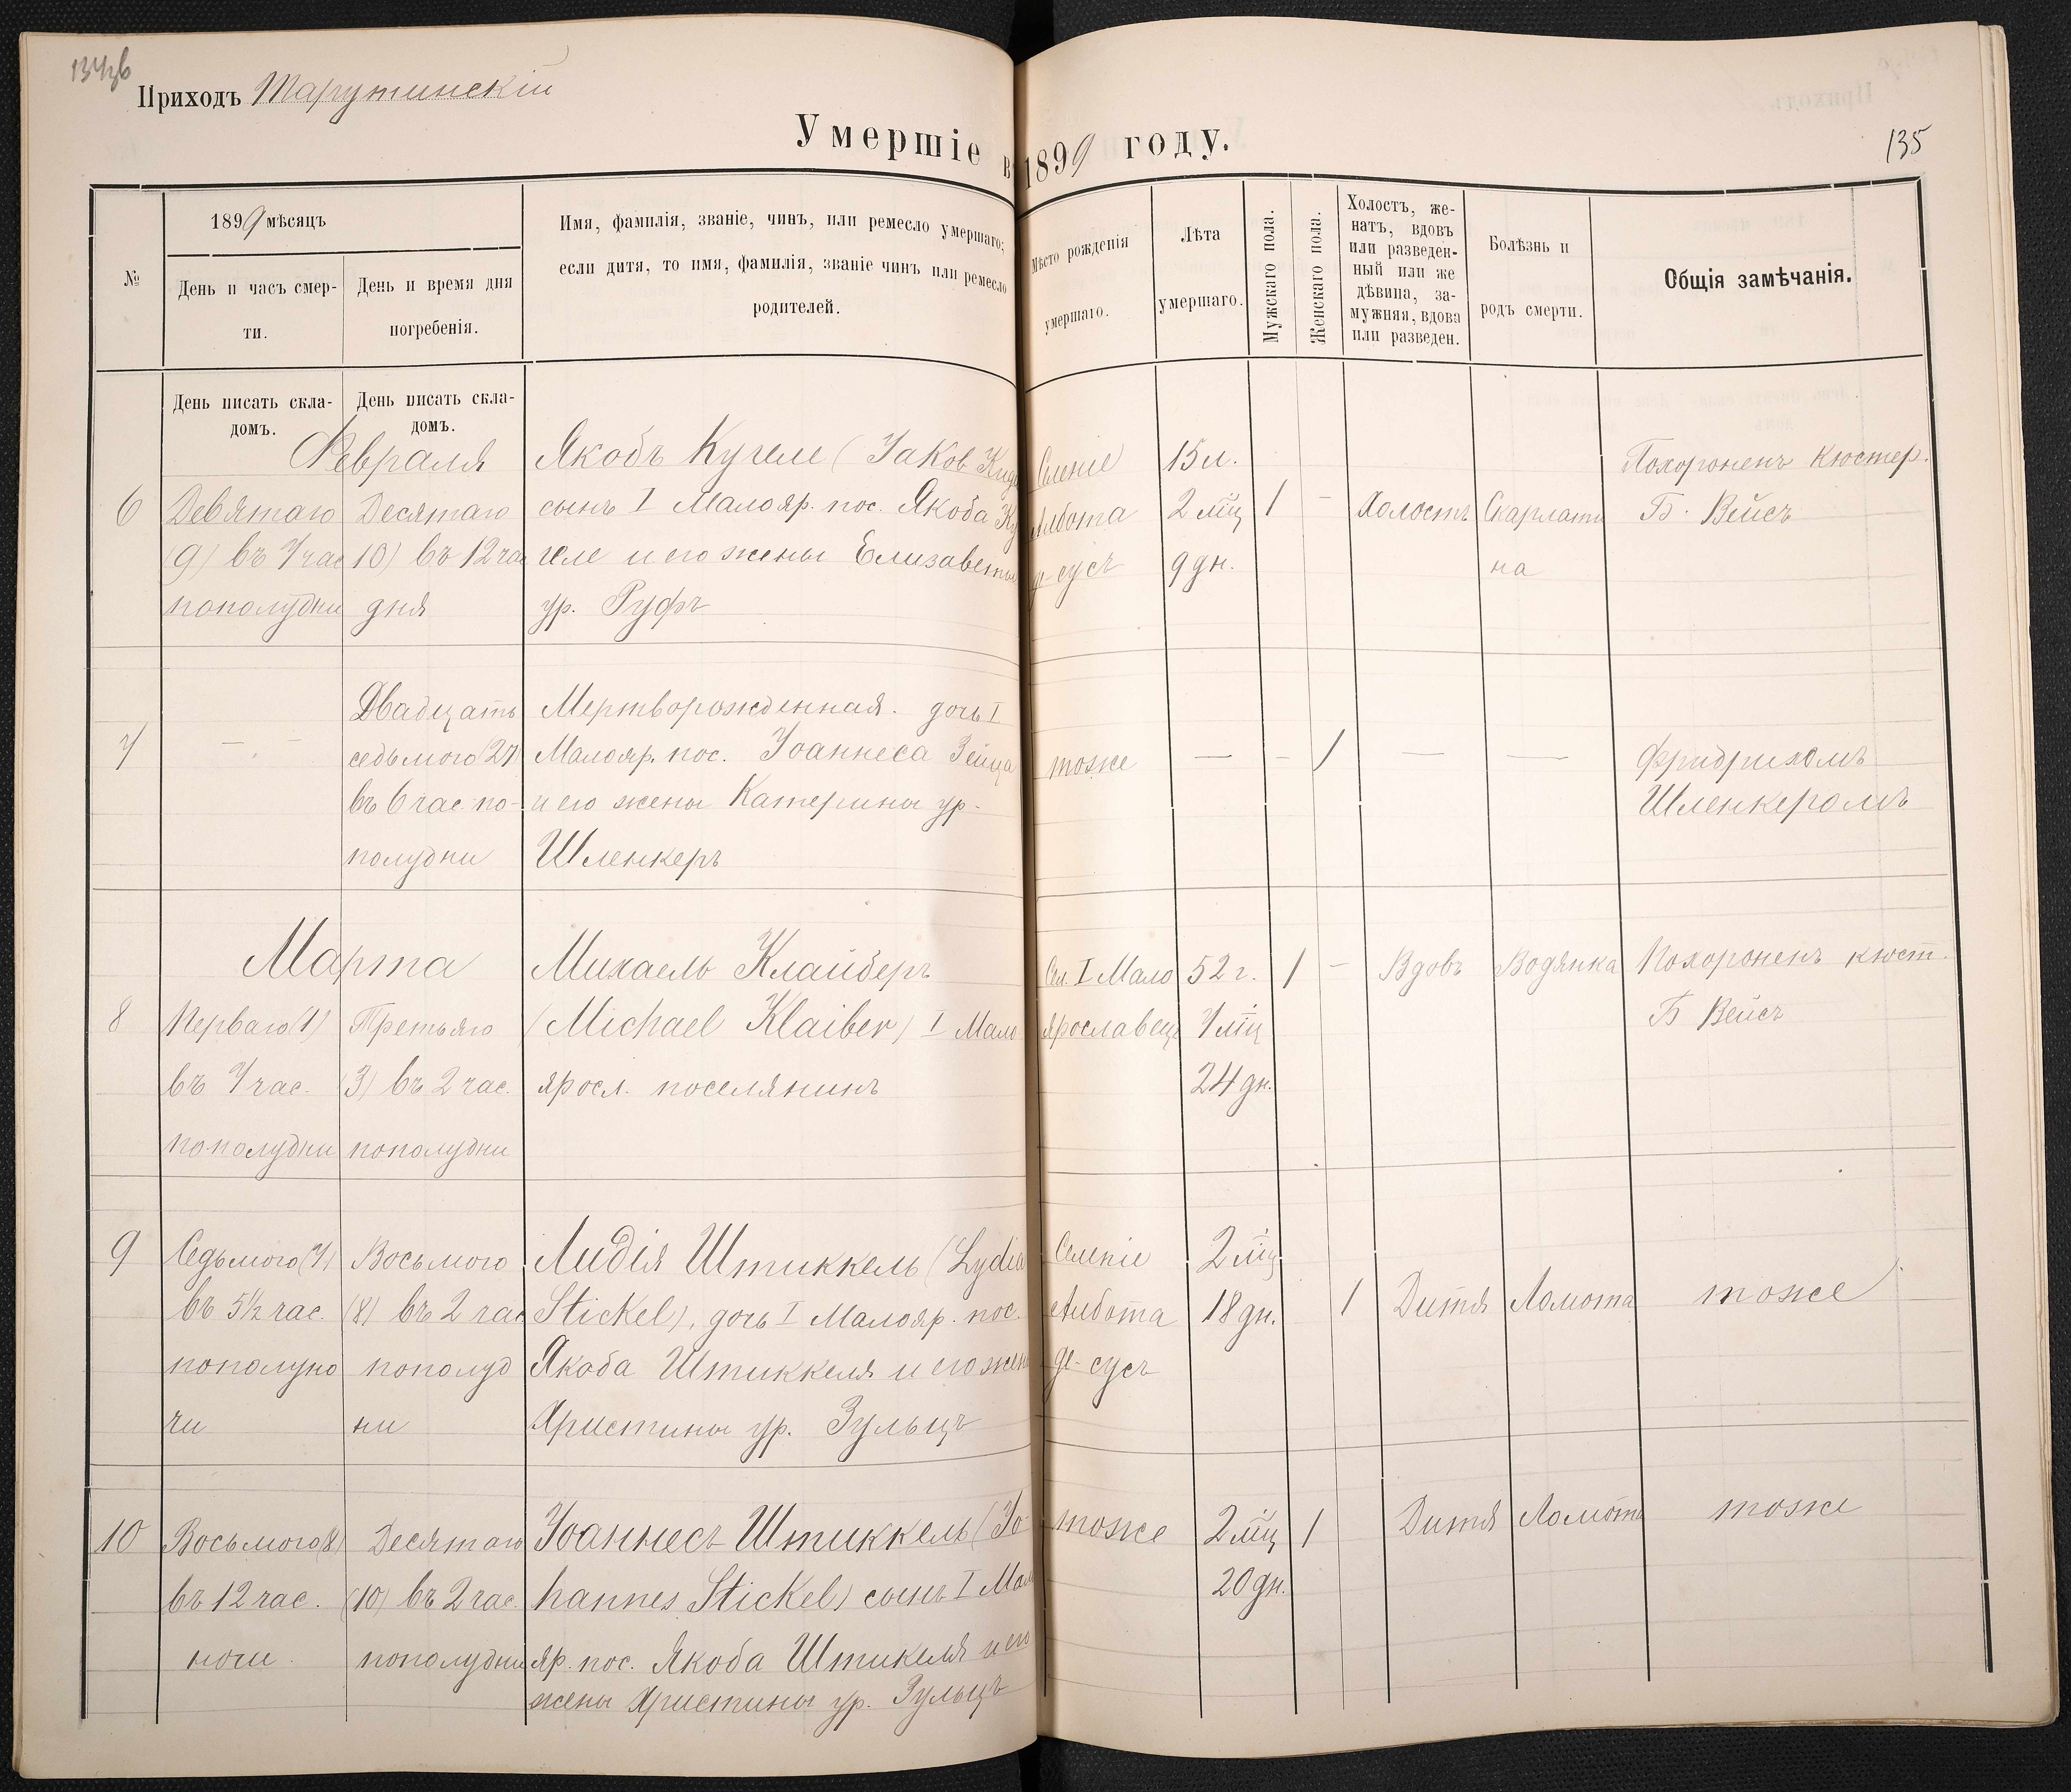 Приходъ Тарутинскій
Умершіе въ 1899 году.
135
№
1899 мѣсяцъ
День и часъ смер-
ти.
День и время дня
погребенія.
Имя, фамилія, званіе, чинъ, или ремесло умершаго;
если дитя, то имя, фамилія, званіе чинъ или ремесло
родителей.
Мѣсто рожденія
умершаго.
Лѣта
умершаго.
Мужскаго пола.
Женскаго пола.
Холостъ, же-
натъ, вдовъ
или разведен-
ный или же
дѣвица, за-
мужняя, вдова
или разведен.
Болѣзнь и
родъ смерти.
Общія замѣчанія.
День писать скла-
домъ.
День писать скла-
домъ.
Февраля
6
Девятаго
(9) въ 7 час
пополудни
Десятаго
10) въ 12 час
дня
Якобъ Кугеле (Jakob
сынъ I Малояр. пос. Якоба Ку
геле и его жены Елизаветы
ур. Руфъ
Селеніе
Албота
де-сусъ
15 л.
2 мц
9 дн.
1
-
Холостъ
Скарлати
на
Похороненъ кюстер.
Б. Вейсъ
7
- . -
Двадцать
седьмого (27)
въ 6 час. по-
полудни
Мертворожденная. дочь I
Малояр. пос. Іоаннеса Зейца
и его жены Катерины ур.
Шленкеръ
тоже
—
-
1
—
—
Фридрихомъ
Шленкеромъ
Марта
8
Перваго (1)
въ 7 час.
пополудни
Третьяго
(3) въ 2 час.
пополудни
Михаель Клайберъ
(Michael Klaiber) I Мало
яросл. поселянинъ
Сел. I Мало
ярославец
52 г.
7 мц
24 дн.
1
-
Вдовъ
Водянка
Похороненъ кюст.
Б Вейсъ
9
Седьмого (7)
въ 5½ час.
пополуно
чи
Восьмого
(8) въ 2 час
пополуд
ни
Лидія Штиккель (Lydia
Stickel), дочь I Малояр. пос.
Якоба Штиккеля и его жены
Христины ур. Зульцъ
Селеніе
Албота
де-сусъ
2 мц
18 дн.
1
Дитя
Ломота
тоже
10
Восьмого (8)
въ 12 час.
ночи.
Десятаго
(10) въ 2 час.
пополудни
Іоаннесъ Штиккель (Jo
hannes Stickel) сынъ I Мало
яр. пос. Якоба Штикеля и его
жены Христины ур. Зульцъ
тоже
2 мц
20 дн.
1
Дитя
Ломота
тоже